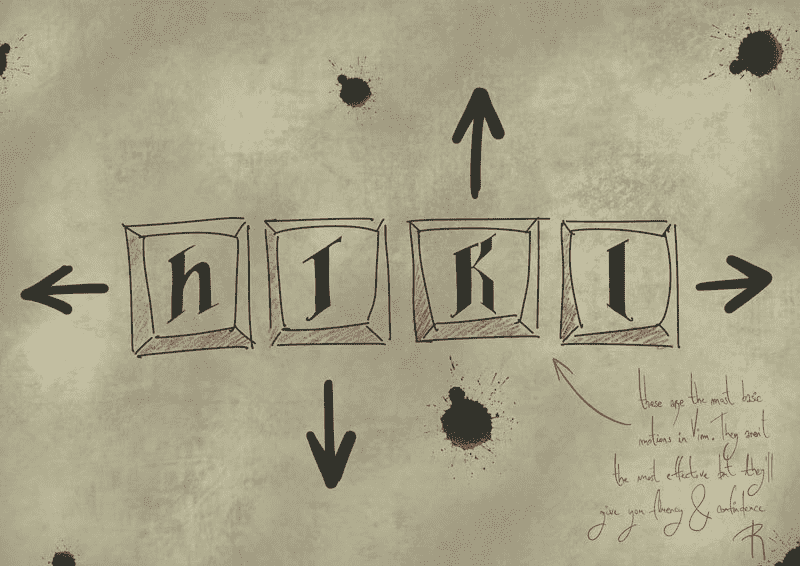 h J K l
these are the most basic
motions in Vim. They aren't
the most effective but they'll
give you fluency & confidence
R